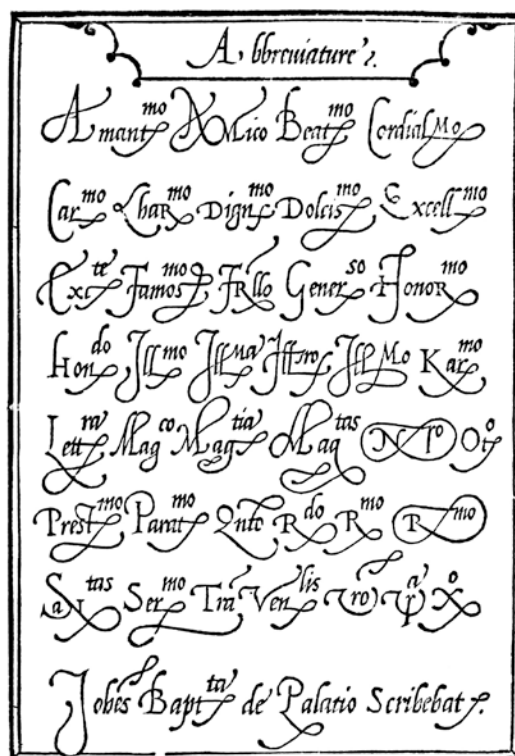 Abbreviature.
Amant^mo Amico Beat^mo Cordial^mo
Car^mo Char^mo Dign^mo Dolcis^mo Excell^mo
Exc^te Famos^mo Frllo Gener^so Honor^mo
Hon^do Ill^mo Ill^ma Ill^mo Kar^mo
Lett^ra Mag^co Mag^tia Mag^tas N^ro Ot^o
Prest^mo Parat^mo Qnto R^do R^mo R^mo
San^tas Ser^mo Tra Ven^lis Vro X^o
Johes Bapt^ta de Palatio Scribebat.